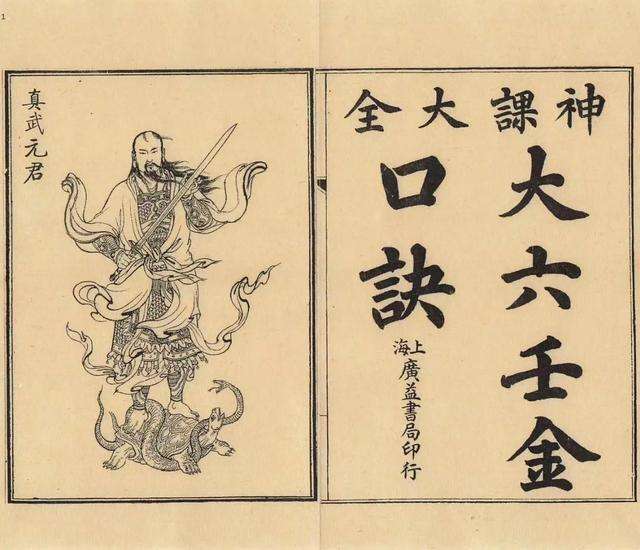 神課大全
大六壬金
口訣
上海
廣益書局印行
真武元君
1